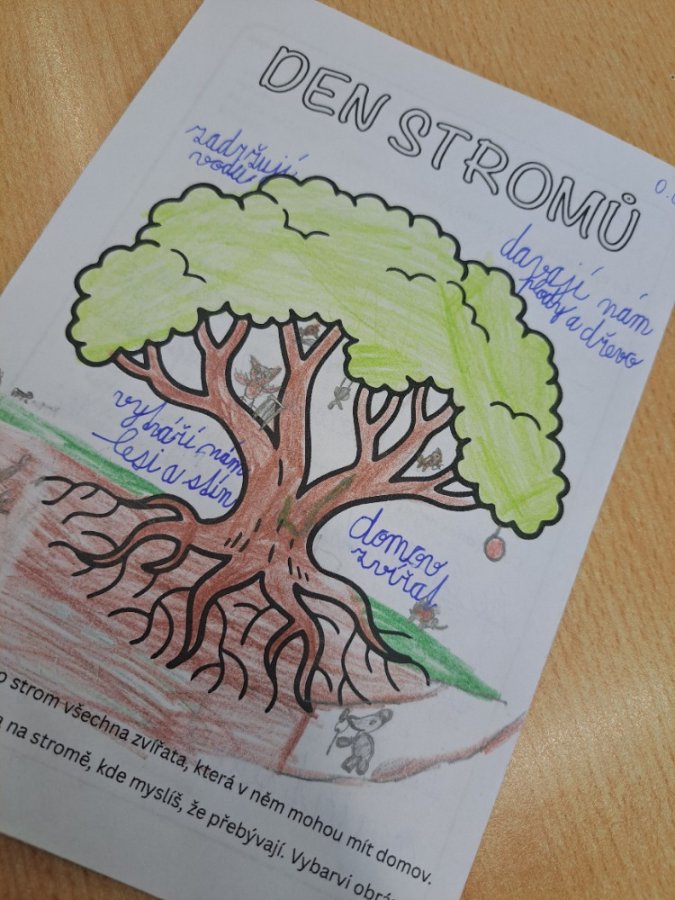 DEN STROMŮ
zadržují
vodu
davají nám
plody a dřevo
vyháří nám
lesi a stín
domov
zvířat
strom všechna zvířata, která v něm mohou mít domov.
a na stromě, kde myslíš, že přebývají. Vybarvi